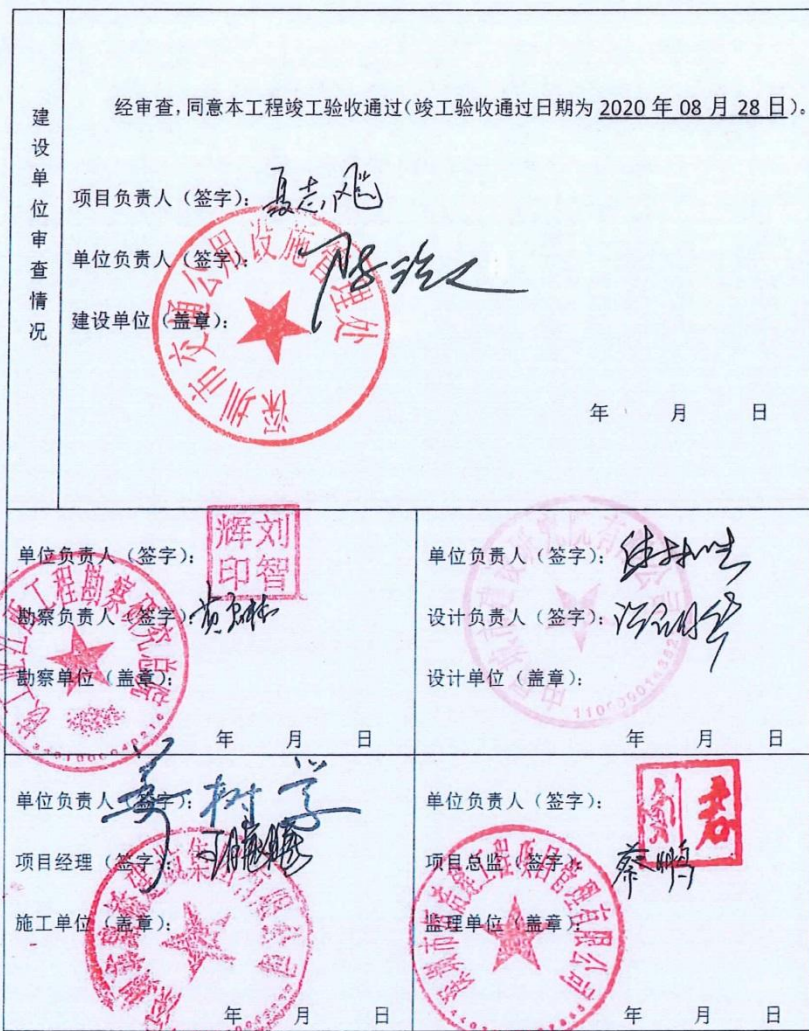 建设单位审查情况
经审查,同意本工程竣工验收通过(竣工验收通过日期为 2020 年 08 月 28 日)。
项目负责人（签字）：
单位负责人（签字）：
建设单位（盖章）：
深圳市交通公用设施管理处
年 月 日
单位负责人（签字）：
刘智辉印
勘察负责人（签字）：
勘察单位（盖章）：
年 月 日
单位负责人（签字）：
设计负责人（签字）：
设计单位（盖章）：
年 月 日
单位负责人（签字）：
项目经理（签字）：
施工单位（盖章）：
年 月 日
单位负责人（签字）：
项目总监（签字）：蔡鹏
监理单位（盖章）：
年 月 日